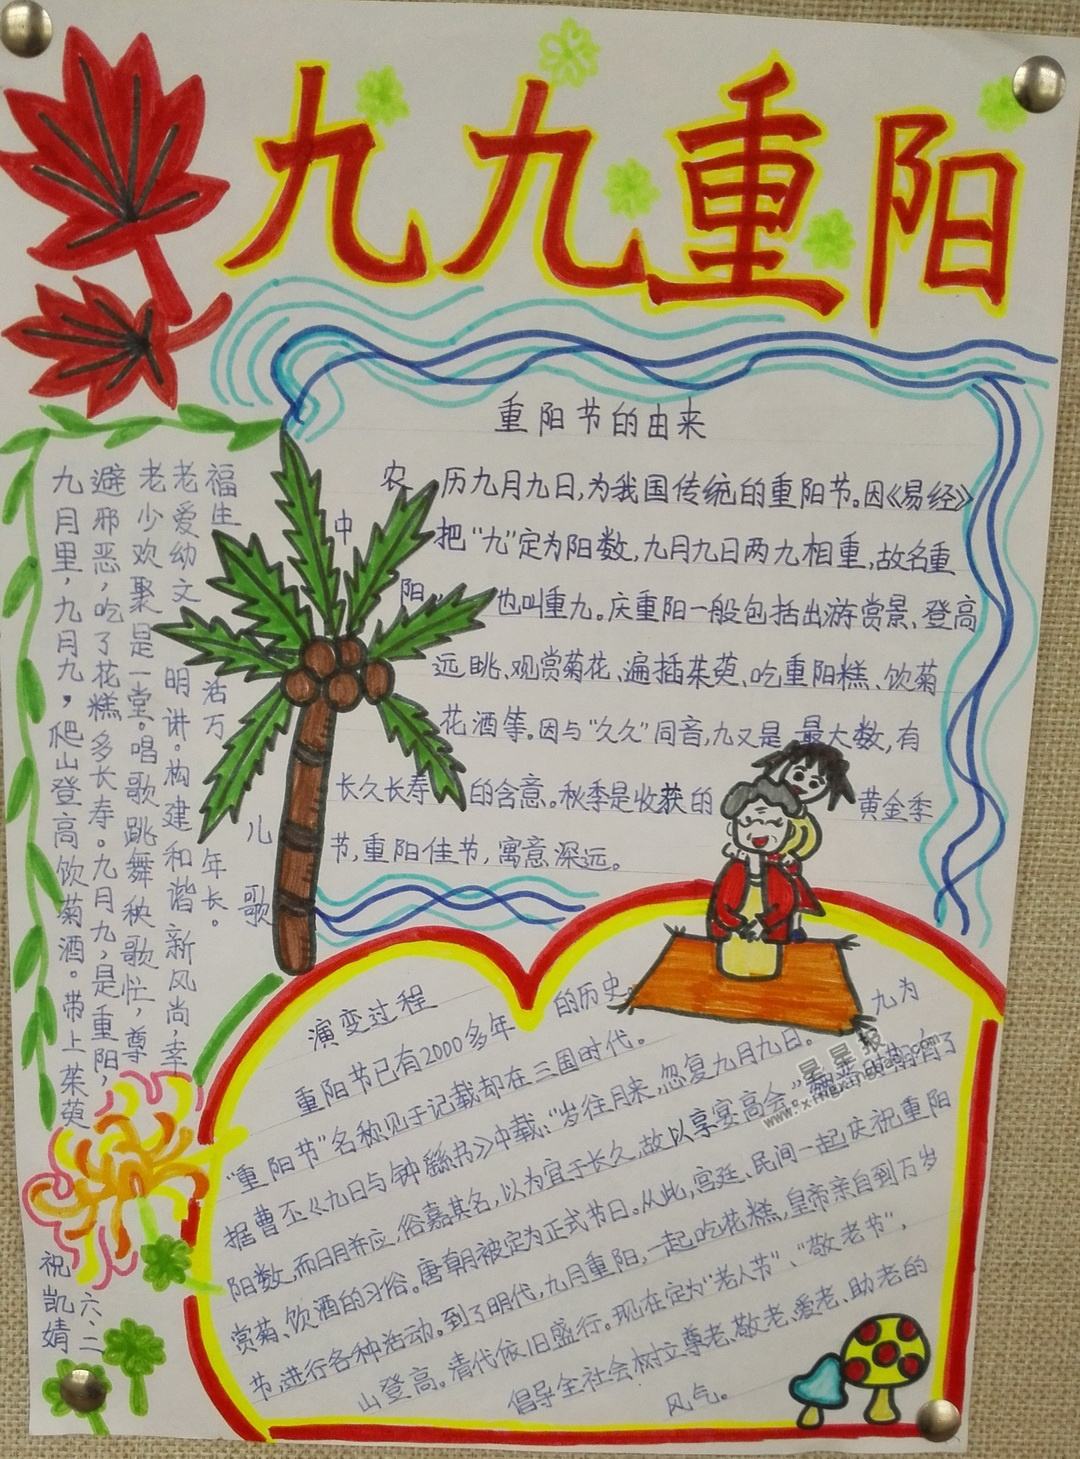 九九重阳
重阳节的由来
农历九月九日,为我国传统的重阳节。因《易经》
中把“九”定为阳数,九月九日两九相重,故名重
阳,也叫重九。庆重阳一般包括出游赏景、登高
远眺、观赏菊花、遍插茱萸、吃重阳糕、饮菊
花酒等。因与“久久”同音,九又是最大数,有
长久长寿的含意。秋季是收获的黄金季
节,重阳佳节,寓意深远。
儿歌
九月里,九月九,爬山登高饮菊酒。带上茱萸
避邪恶,吃了花糕多长寿。九月九,是重阳,
老少欢聚是一堂。唱歌跳舞秧歌忙,尊
老爱幼文明讲。构建和谐新风尚,幸
福生活万年长。
演变过程
重阳节已有2000多年的历史。
“重阳节”名称见于记载却在三国时代。
据曹丕《九日与钟繇书》中载:“岁往月来,忽复九月九日。九为
阳数,而日月并应,俗嘉其名,以为宜于长久,故以享宴高会。”时期有了
赏菊、饮酒的习俗。唐朝被定为正式节日。从此,宫廷、民间一起庆祝重阳
节,进行各种活动。到了明代,九月重阳,一起吃花糕,皇帝亲自到万岁
山登高。清代依旧盛行。现在定为“老人节”、“敬老节”,
倡导全社会树立尊老、敬老、爱老、助老的
风气。
六、二
祝凯婧
星星报